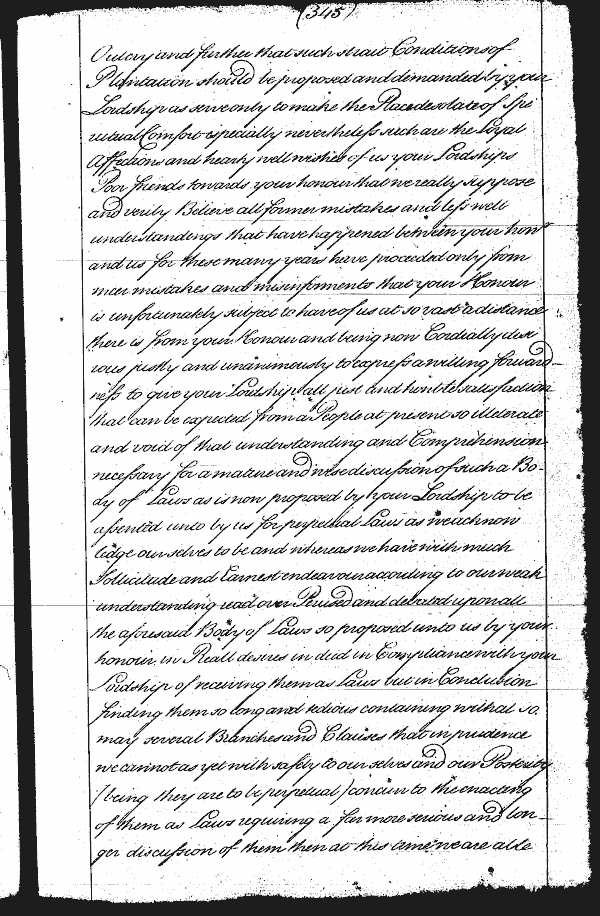 (345)
Outcry and further that such strait Conditions of
Plantation should be proposed and demanded by your
Lordship as serve only to make the Place desolate of Spi
ritual Comfort especially nevertheless such are the Loyal
Affections and hearty well wishes of us your Lordships
Poor friends towards your honour that we really suppose
and verily Believe all former mistakes and less well
understandings that have happened between your honr
and us for these many years have proceeded only from
meer mistakes and misinforments that your Honour
is unfortunately subject to have of us at so vast a distance
there is from your Honour and being now Cordially desi
rous justly and unanimously to express a willing forward-
ness to give your Lordship all just and honble satisfaction
that can be expected from a People at present so illiterate
and void of that understanding and Comprehension
necessary for a mature and wise discussion of such a Bo-
dy of Laws as is now proposed by your Lordship to be
assented unto by us for perpetual Laws as we acknow
lidge our selves to be and whereas we have with much
Sollicitude and Earnest endeavour according to our weak
understanding read over Perused and debated upon all
the aforesaid Body of Laws so proposed unto us by your
honour in Reall desires in deed in Compliance with your
Lordship of receiving them as Laws but in Conclusion
finding them so long and tedious containing withal so
many several Branches and Clauses that in prudence
we cannot as yet with safety to our selves and our Posterity
(being they are to be perpetual) concur to the enacting
of them as Laws requiring a far more serious and lon-
ger discussion of them then at this time we are able